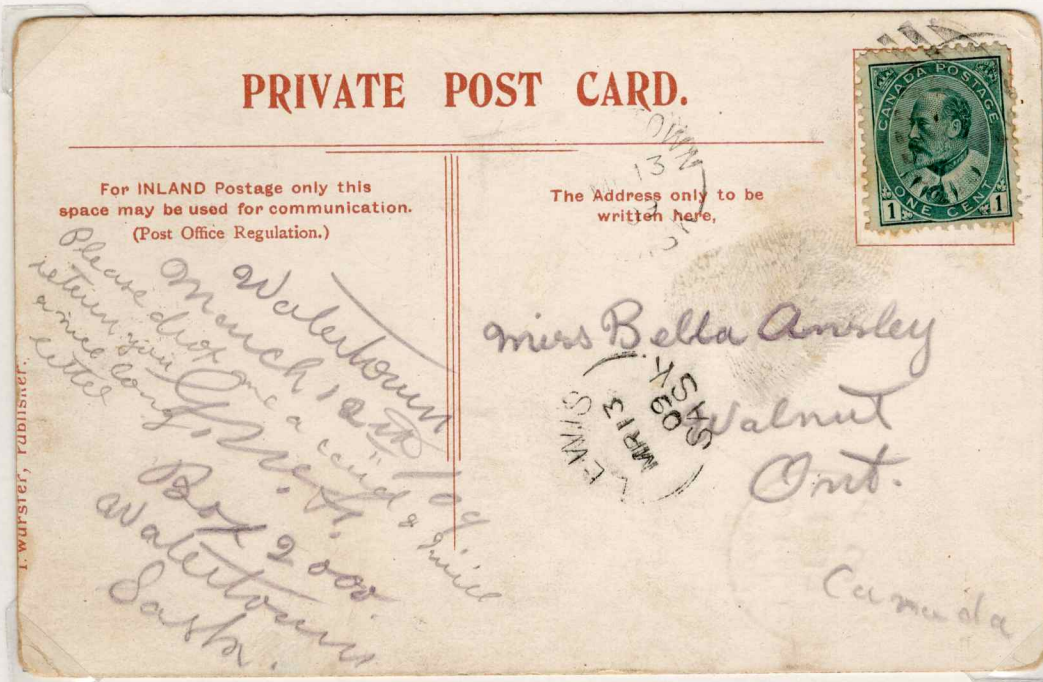 PRIVATE POST CARD.
For INLAND Postage only this
space may be used for communication.
(Post Office Regulation.)
The Address only to be
written here,
CANADA POSTAGE
1 ONE CENT 1
OWN
13
Watertown
March 12th /09
Please drop me a card & I will
return you
a nice long
letter
Box 2000.
Watertown
Sask.
Miss Bella Ansley
Walnut
Ont.
Canada
LEWIS
MR 13
09
SASK
T. Wurster, Publisher.